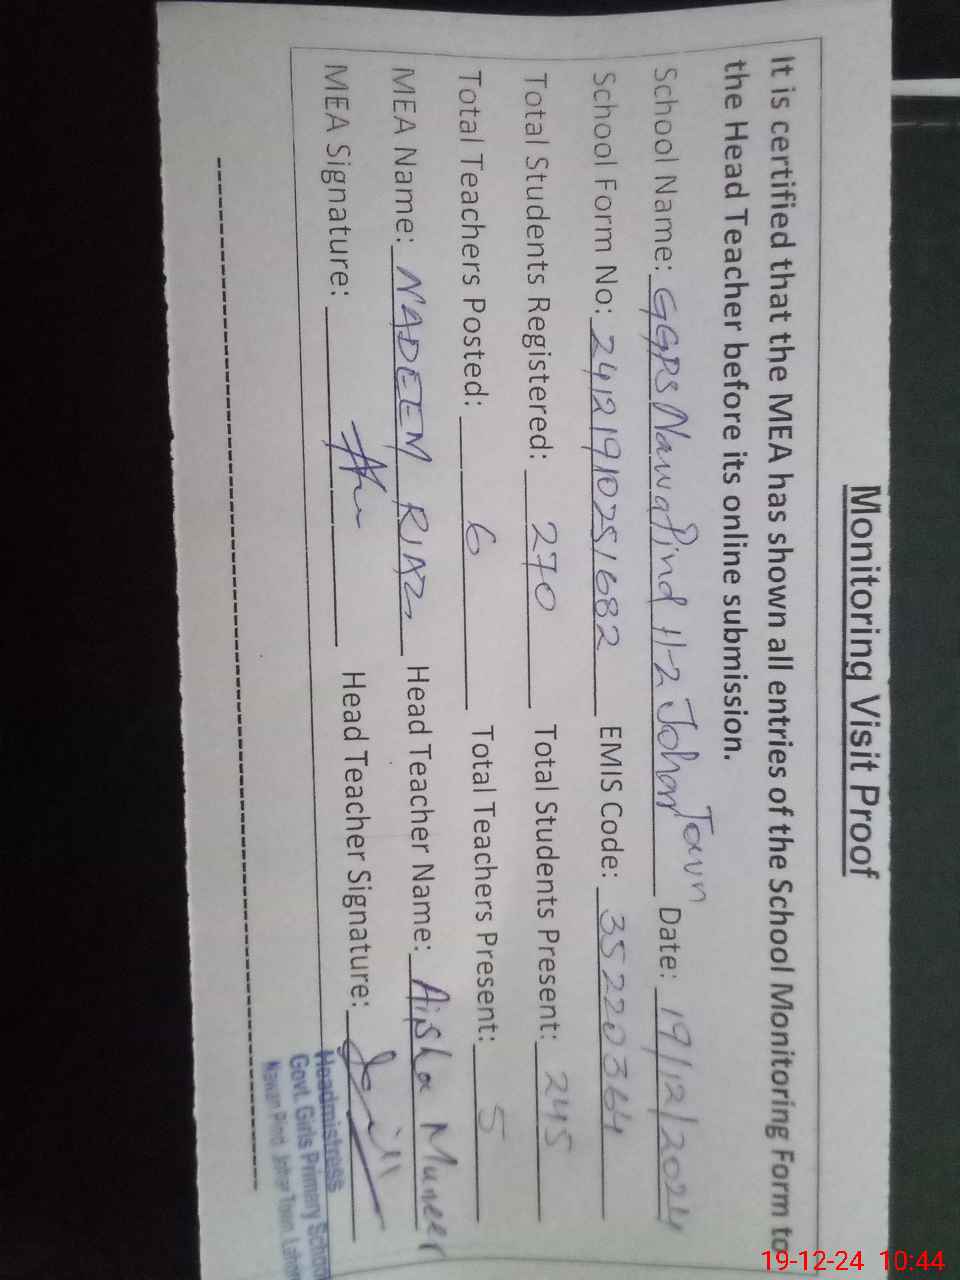 Monitoring Visit Proof
It is certified that the MEA has shown all entries of the School Monitoring Form to
the Head Teacher before its online submission.
School Name: GGPS Nawa Pind H-2 Johar Town Date: 19/12/2024
School Form No: 24121910251682 EMIS Code: 35220364
Total Students Registered: 270 Total Students Present: 245
Total Teachers Posted: 6 Total Teachers Present: 5
MEA Name: NADEEM RIAZ, Head Teacher Name: Aisha Muneer
MEA Signature: Head Teacher Signature:
Headmistress
Govt. Girls Primary School
Nawan Pind Johar Town Lahore
19-12-24 10:44